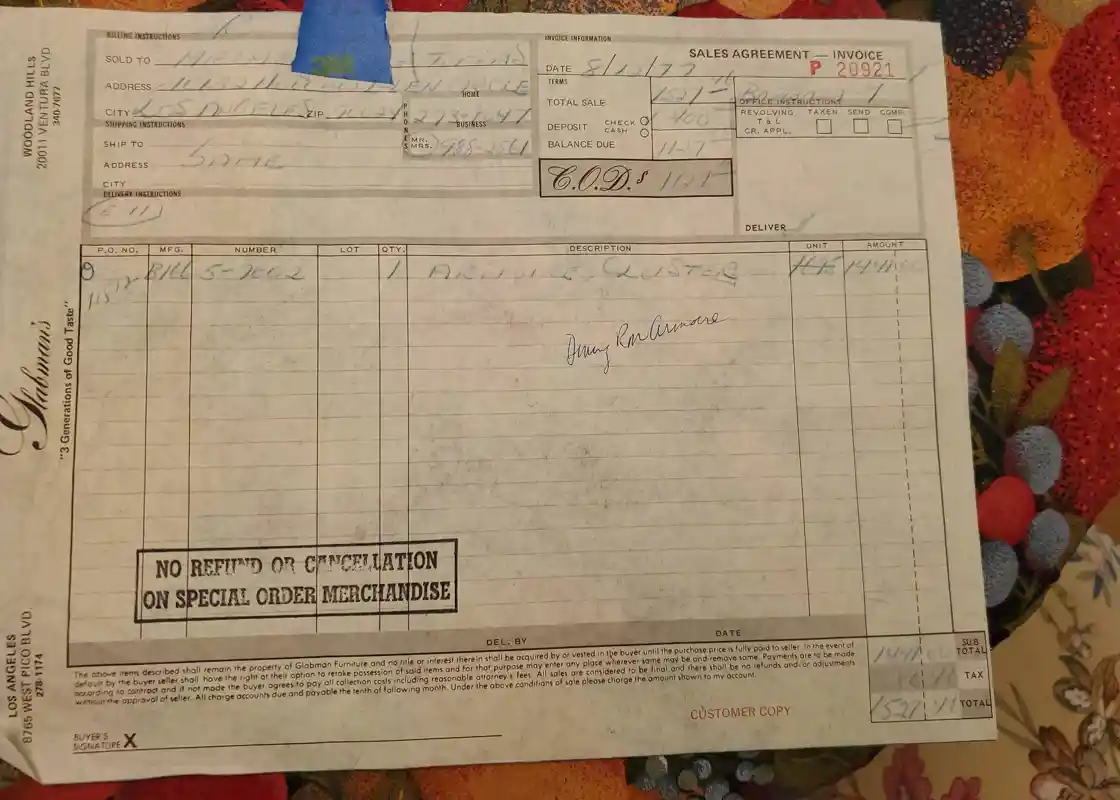 WOODLAND HILLS
20011 VENTURA BLVD
340-7677
Glabman's
"3 Generations of Good Taste"
LOS ANGELES
8765 WEST PICO BLVD.
278-1174
BILLING INSTRUCTIONS
SOLD TO
ADDRESS
HOME
CITY LOS ANGELES ZIP
PHONES
SHIPPING INSTRUCTIONS
BUSINESS
MR.
MRS.
SHIP TO
ADDRESS SAME
CITY
DELIVERY INSTRUCTIONS
E 11
INVOICE INFORMATION
SALES AGREEMENT — INVOICE
DATE 8/12/77
P 20921
TERMS
TOTAL SALE 1521
DEPOSIT CHECK CASH 400
BALANCE DUE
C.O.D.s
OFFICE INSTRUCTIONS
REVOLVING TAKEN SEND COMP.
T & L
CR. APPL.
DELIVER
P.O. NO. MFG. NUMBER LOT QTY. DESCRIPTION UNIT AMOUNT
1 CLUSTER
Dining Rm Armoire
NO REFUND OR CANCELLATION
ON SPECIAL ORDER MERCHANDISE
DEL. BY DATE
The above items described shall remain the property of Glabman Furniture and no title or interest therein shall be acquired by or vested in the buyer until the purchase price is fully paid to seller. In the event of
default by the buyer seller shall have the right at their option to retake possession of said items and for that purpose may enter any place wherever same may be and remove same. Payments are to be made
according to contract and if not made the buyer agrees to pay all collection costs including reasonable attorney's fees. All sales are considered to be final and there shall be no refunds and/or adjustments
without the approval of seller. All charge accounts due and payable the tenth of following month. Under the above conditions of sale please charge the amount shown to my account.
SUB TOTAL
TAX
1521 TOTAL
CUSTOMER COPY
BUYER'S
SIGNATURE X